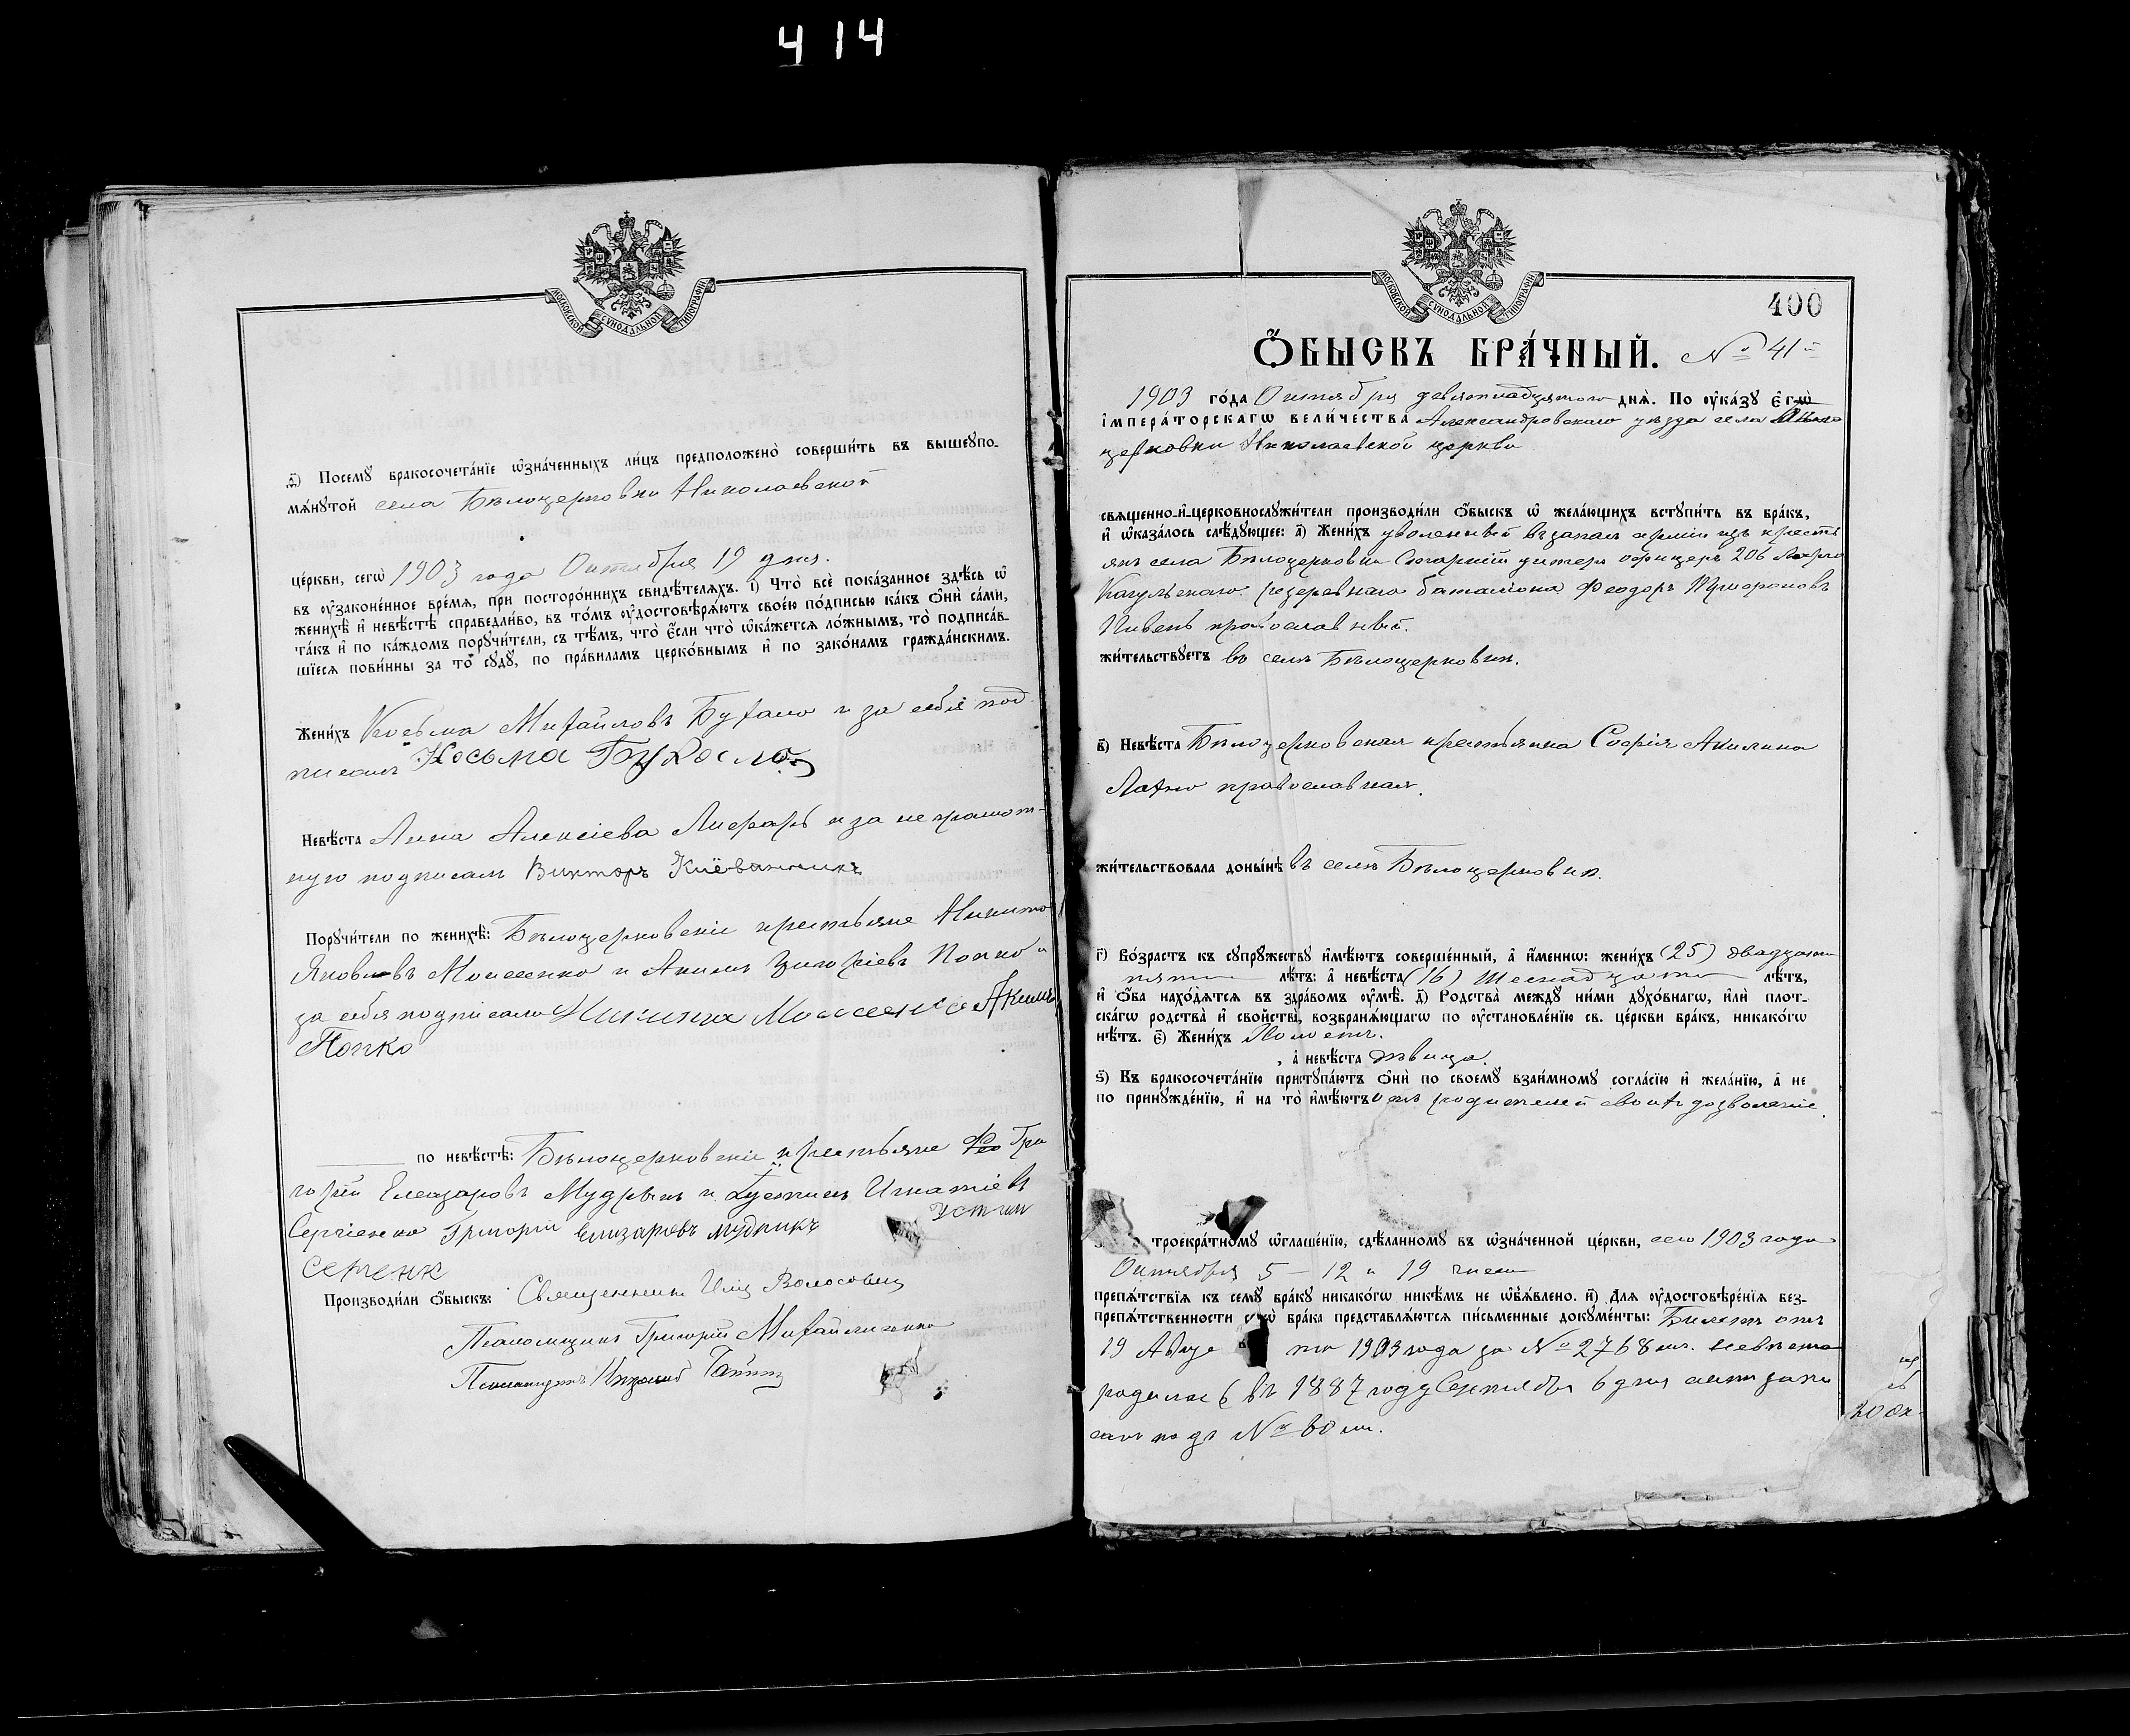 4 14
МОСКОВСКОЙ СѴНОДАЛЬНОЙ ТИПОГРАФІИ
ѳ҃) Посемꙋ̀ бракосочета́нїе ѡ҆зна́ченныхъ ли́цъ предположено̀ соверши́ть въ вышеꙋпо-
мѧ́нꙋтой села Бѣлоцерковки Николаевской
це́ркви, сегѡ̀ 1903 года Октября 19 дня.
въ ᲂу҆зако́ненное вре́мѧ, при посторо́ннихъ свидѣ́телѧхъ. і҃) Что̀ всѐ пока́занное здѣ́сь ѡ҆
женихѣ̀ и҆ невѣ́стѣ справедли́во, въ то́мъ ᲂу҆достовѣрѧ́ютъ свое́ю по́дписью ка́къ ѻ҆нѝ са́ми,
та́къ и҆ по ка́ждомъ порꙋчи́тели, съ тѣ́мъ, что̀ є҆́сли что̀ ѡ҆ка́жетсѧ ло́жнымъ, то̀ подписа́в-
шїесѧ пови́нны за то̀ сꙋдꙋ̀, по пра́виламъ церко́внымъ и҆ по зако́намъ гражда́нскимъ.
Жени́хъ Косьма Михайловъ Бухало и за себя под
писалъ Косьма Бухало
Невѣ́ста Анна Алексіева Лифарь и за неграмот-
ную подписалъ Викторъ
Порꙋчи́тели по женихѣ̀: Бѣлоцерковскіе крестьяне Никита
Яковлевъ Моисеенко и Акимъ Григоріевъ Попко и
за себя подписали Никита Моисеенко Акимъ
Попко
по невѣ́стѣ: Бѣлоцерковскіе крестьяне Гри
горій Елеазаровъ Мудрикъ и Устинъ Игнатіевъ
Сергіенко Григорій Елизаровъ Мудрикъ Устин
Сергенк
Производи́ли ѻ҆́быскъ: Священникъ Илія Волосовиц
Псаломщикъ Григорій Михайличенко
Псаломщикъ
МОСКОВСКОЙ СѴНОДАЛЬНОЙ ТИПОГРАФІИ
400
Ѻ҆́БЫСКЪ БРА́ЧНЫЙ. № 41й
1903 го́да Октября девятнадцатаго днѧ̀. По ᲂу҆ка́зꙋ Є҆гѡ̀
І҆мпера́торскагѡ вели́чества Александровскаго уѣзда села Бѣло
церковки Николаевской церкви
свѧще́нно-и҆-церковнослꙋжи́тели производи́ли ѻ҆́быскъ ѡ҆ жела́ющихъ встꙋпи́ть въ бра́къ,
и҆ ѡ҆каза́лось слѣ́дꙋющее: а҃) Жени́хъ уволенный въ запасъ арміи изъ кресть
янъ села Бѣлоцерковки Старшій унтеръ офицеръ 206 Ларго
Кагульскаго резервнаго батальона Феодоръ
Пивень православный.
жи́тельствꙋетъ въ селѣ Бѣлоцерковкѣ.
в҃) Невѣ́ста Бѣлоцерковская крестьянка Софія Акилина
Лахно православная.
жи́тельствовала доны́нѣ въ селѣ Бѣлоцерковкѣ.
г҃) Во́зрастъ къ сꙋпрꙋ́жествꙋ и҆мѣ́ютъ соверше́нный, а҆ и҆́меннѡ: жени́хъ (25) двадцати
пяти лѣ́тъ: а҆ невѣ́ста (16) шестнадцати лѣ́тъ,
и҆ ѻ҆́ба нахо́дѧтсѧ въ здра́вомъ ᲂу҆мѣ̀. д҃) Родства̀ междꙋ ни́ми дꙋхо́внагѡ, и҆лѝ плот-
ска́гѡ родства̀ и҆ сво́йства, возбранѧ́ющагѡ по ᲂу҆становле́нїю св. це́ркви бра́къ, никако́гѡ
нѣ́тъ. є҃) Жени́хъ Холостъ.
, а҆ невѣ́ста дѣвица.
ѕ҃) Къ бракосочета́нїю пристꙋпа́ютъ ѻ҆нѝ по своемꙋ̀ взаи́мномꙋ согла́сїю и҆ жела́нїю, а҆ не
по принꙋжде́нїю, и҆ на то̀ и҆мѣ́ютъ отъ родителей своихъ дозволеніе.
троекра́тномꙋ ѡ҆глаше́нїю, сдѣ́ланномꙋ въ ѡ҆зна́ченной це́ркви, сего 1903 года
Октября 5 - 12 и 19 числа
препѧ́тствїѧ къ семꙋ̀ бра́кꙋ никако́гѡ никѣ́мъ не ѡ҆б̾ѧ́влено. и҃) Длѧ ᲂу҆достовѣре́нїѧ без-
препѧ́тственности бра́ка представлѧ́ютсѧ пи́сьменные докꙋме́нты: Билетъ отъ
19 Авгу та 1903 года за № 2768мъ. Невѣста
родилась въ 1887 году Сентября 6 дня актъ запи
санъ подъ № 60мъ.
20 Ок